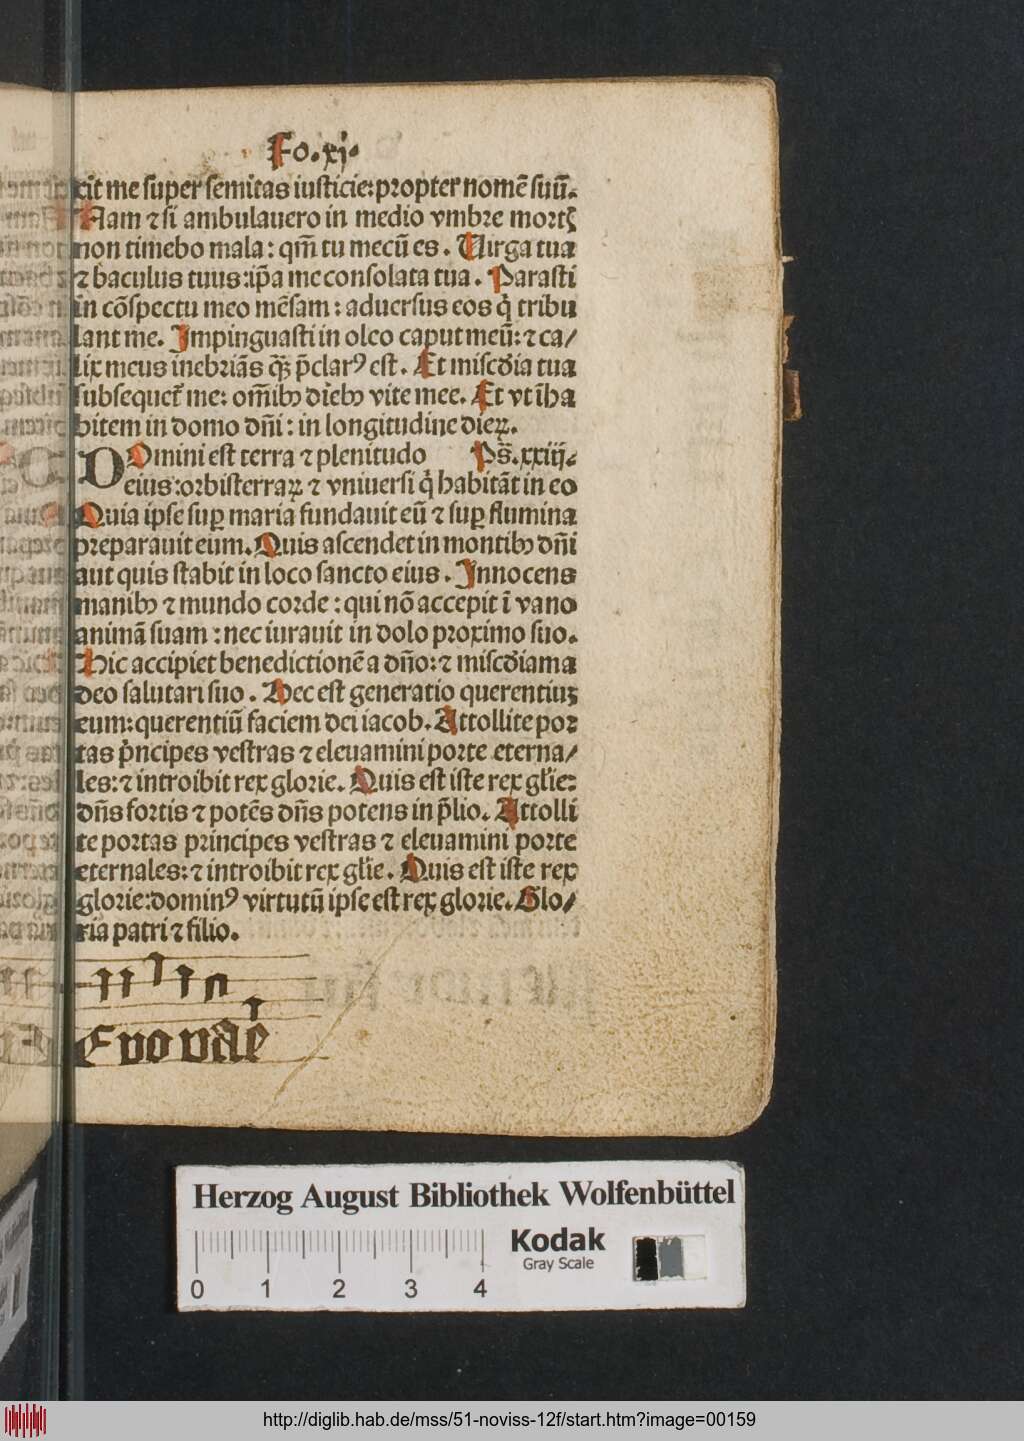 Fo.xj.
xit me super semitas iusticie: propter nomē suū.
Nam ⁊ si ambulauero in medio vmbre mortꝭ
non timebo mala: qm̄ tu mecū es. Uirga tua
⁊ baculus tuus: ip̄a me consolata tua. Parasti
in cōspectu meo mēsam: aduersus eos q̇ tribu
lant me. Impinguasti in oleo caput meū: ⁊ ca/
lix meus inebriās qꝫ̄ p̄clarꝰ est. Et misc̄dia tua
subsequet᷑ me: om̄ibꝫ diebꝫ vite mee. Et vt īha
bitem in domo dn̄i: in longitudine dieꝝ.
DOmini est terra ⁊ plenitudo Ps̄.xxiij.
eius: orbisterraꝝ ⁊ vniuersi q̇ habitāt in eo
Quia ipse suꝑ maria fundauit eū ⁊ suꝑ flumina
preparauit eum. Quis ascendet in montibꝫ dn̄i
aut quis stabit in loco sancto eius. Innocens
manibꝫ ⁊ mundo corde: qui nō accepit ī vano
animā suam: nec iurauit in dolo proximo suo.
Hic accipiet benedictionē a dn̄o: ⁊ misc̄diam a
deo salutari suo. Hec est generatio querentiuꝫ
eum: querentiū faciem dei iacob. Attollite por
tas ṗncipes vestras ⁊ eleuamini porte eterna/
les: ⁊ introibit rex glorie. Quis est iste rex gl̄ie:
dn̄s fortis ⁊ potēs dn̄s potens in p̄lio. Attolli
te portas principes vestras ⁊ eleuamini porte
eternales: ⁊ introibit rex gl̄ie. Quis est iste rex
glorie: dominꝰ virtutū ipse est rex glorie. Glo/
ria patri ⁊ filio.
Euouae
Herzog August Bibliothek Wolfenbüttel
Kodak
Gray Scale
0 1 2 3 4
http://diglib.hab.de/mss/51-noviss-12f/start.htm?image=00159